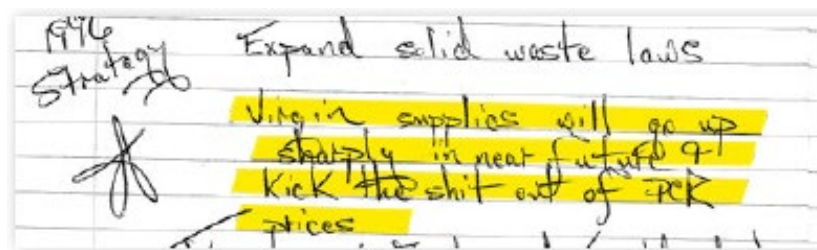 1996
Strategy
Expand solid waste laws
Virgin supplies will go up
sharply in near future &
Kick the shit out of PCR
prices